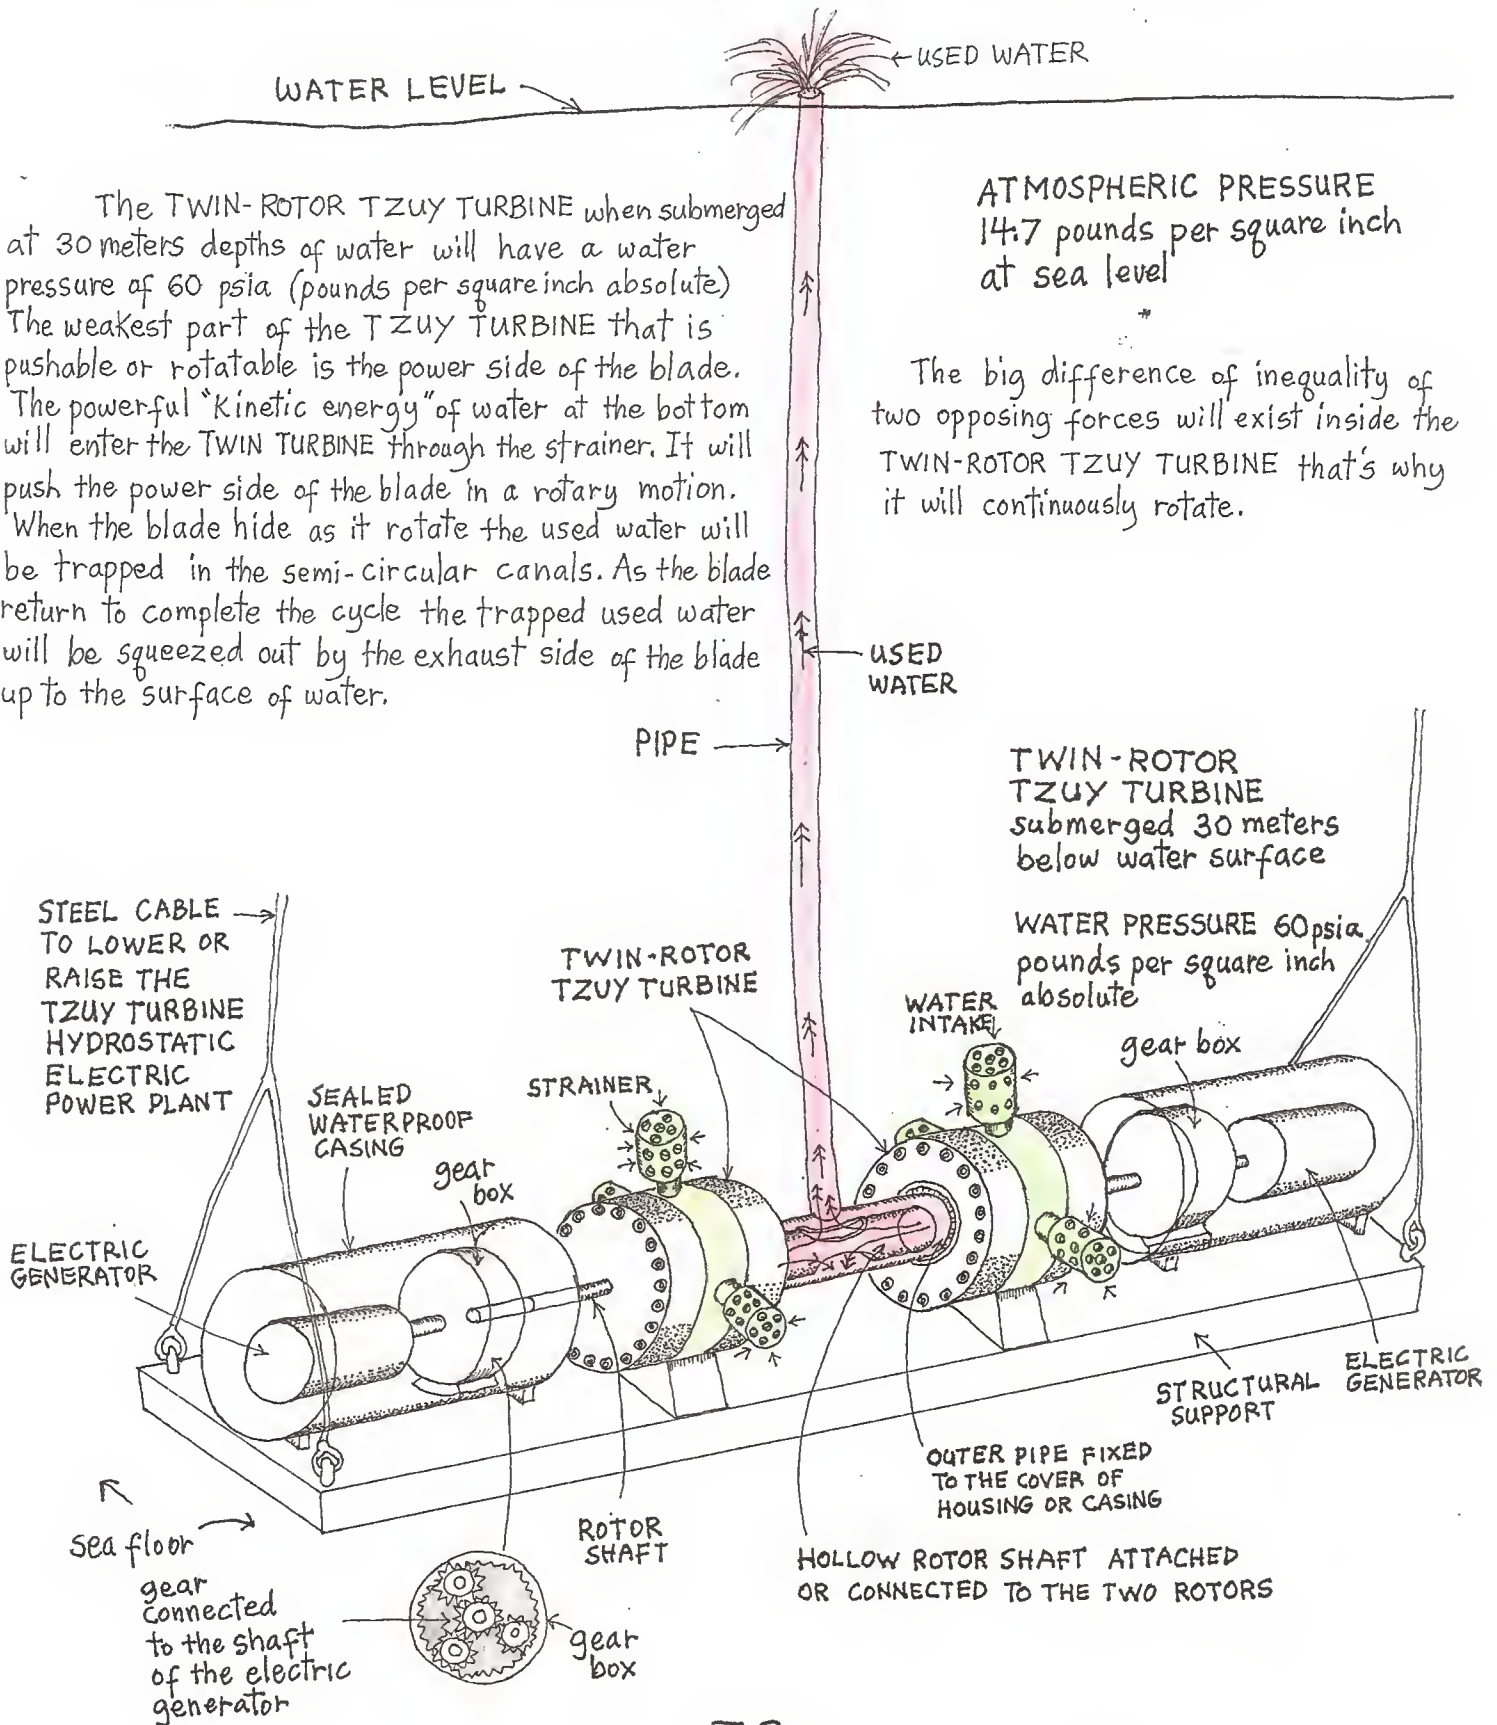 USED WATER
WATER LEVEL
The TWIN-ROTOR TZUY TURBINE when submerged
at 30 meters depths of water will have a water
pressure of 60 psia (pounds per square inch absolute)
The weakest part of the TZUY TURBINE that is
pushable or rotatable is the power side of the blade.
The powerful "Kinetic energy" of water at the bottom
will enter the TWIN TURBINE through the strainer. It will
push the power side of the blade in a rotary motion.
When the blade hide as it rotate the used water will
be trapped in the semi-circular canals. As the blade
return to complete the cycle the trapped used water
will be squeezed out by the exhaust side of the blade
up to the surface of water.
ATMOSPHERIC PRESSURE
14.7 pounds per square inch
at sea level
The big difference of inequality of
two opposing forces will exist inside the
TWIN-ROTOR TZUY TURBINE that's why
it will continuously rotate.
USED
WATER
PIPE
TWIN-ROTOR
TZUY TURBINE
submerged 30 meters
below water surface
WATER PRESSURE 60 psia
pounds per square inch
absolute
STEEL CABLE
TO LOWER OR
RAISE THE
TZUY TURBINE
HYDROSTATIC
ELECTRIC
POWER PLANT
TWIN-ROTOR
TZUY TURBINE
WATER
INTAKE
gear box
STRAINER
SEALED
WATERPROOF
CASING
gear
box
ELECTRIC
GENERATOR
ELECTRIC
GENERATOR
STRUCTURAL
SUPPORT
OUTER PIPE FIXED
TO THE COVER OF
HOUSING OR CASING
ROTOR
SHAFT
HOLLOW ROTOR SHAFT ATTACHED
OR CONNECTED TO THE TWO ROTORS
sea floor
gear
connected
to the shaft
of the electric
generator
gear
box